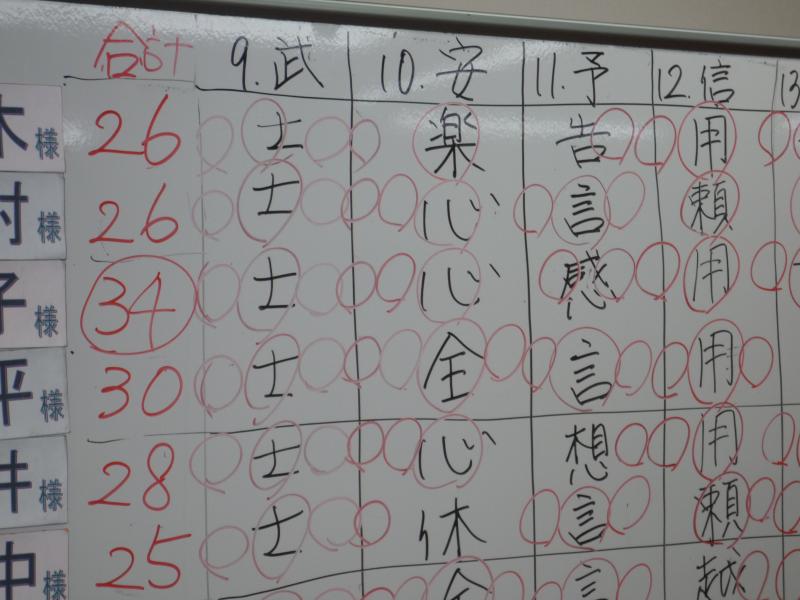 合計 9.武 10.安 11.予 12.信 13
木様 26 士 楽 告 用
村様 26 士 心 言 頼
子様 34 士 心 感 用
平様 30 士 全 言 用
井様 28 士 心 想 用
中様 25 士 休 言 頼
全 言 越